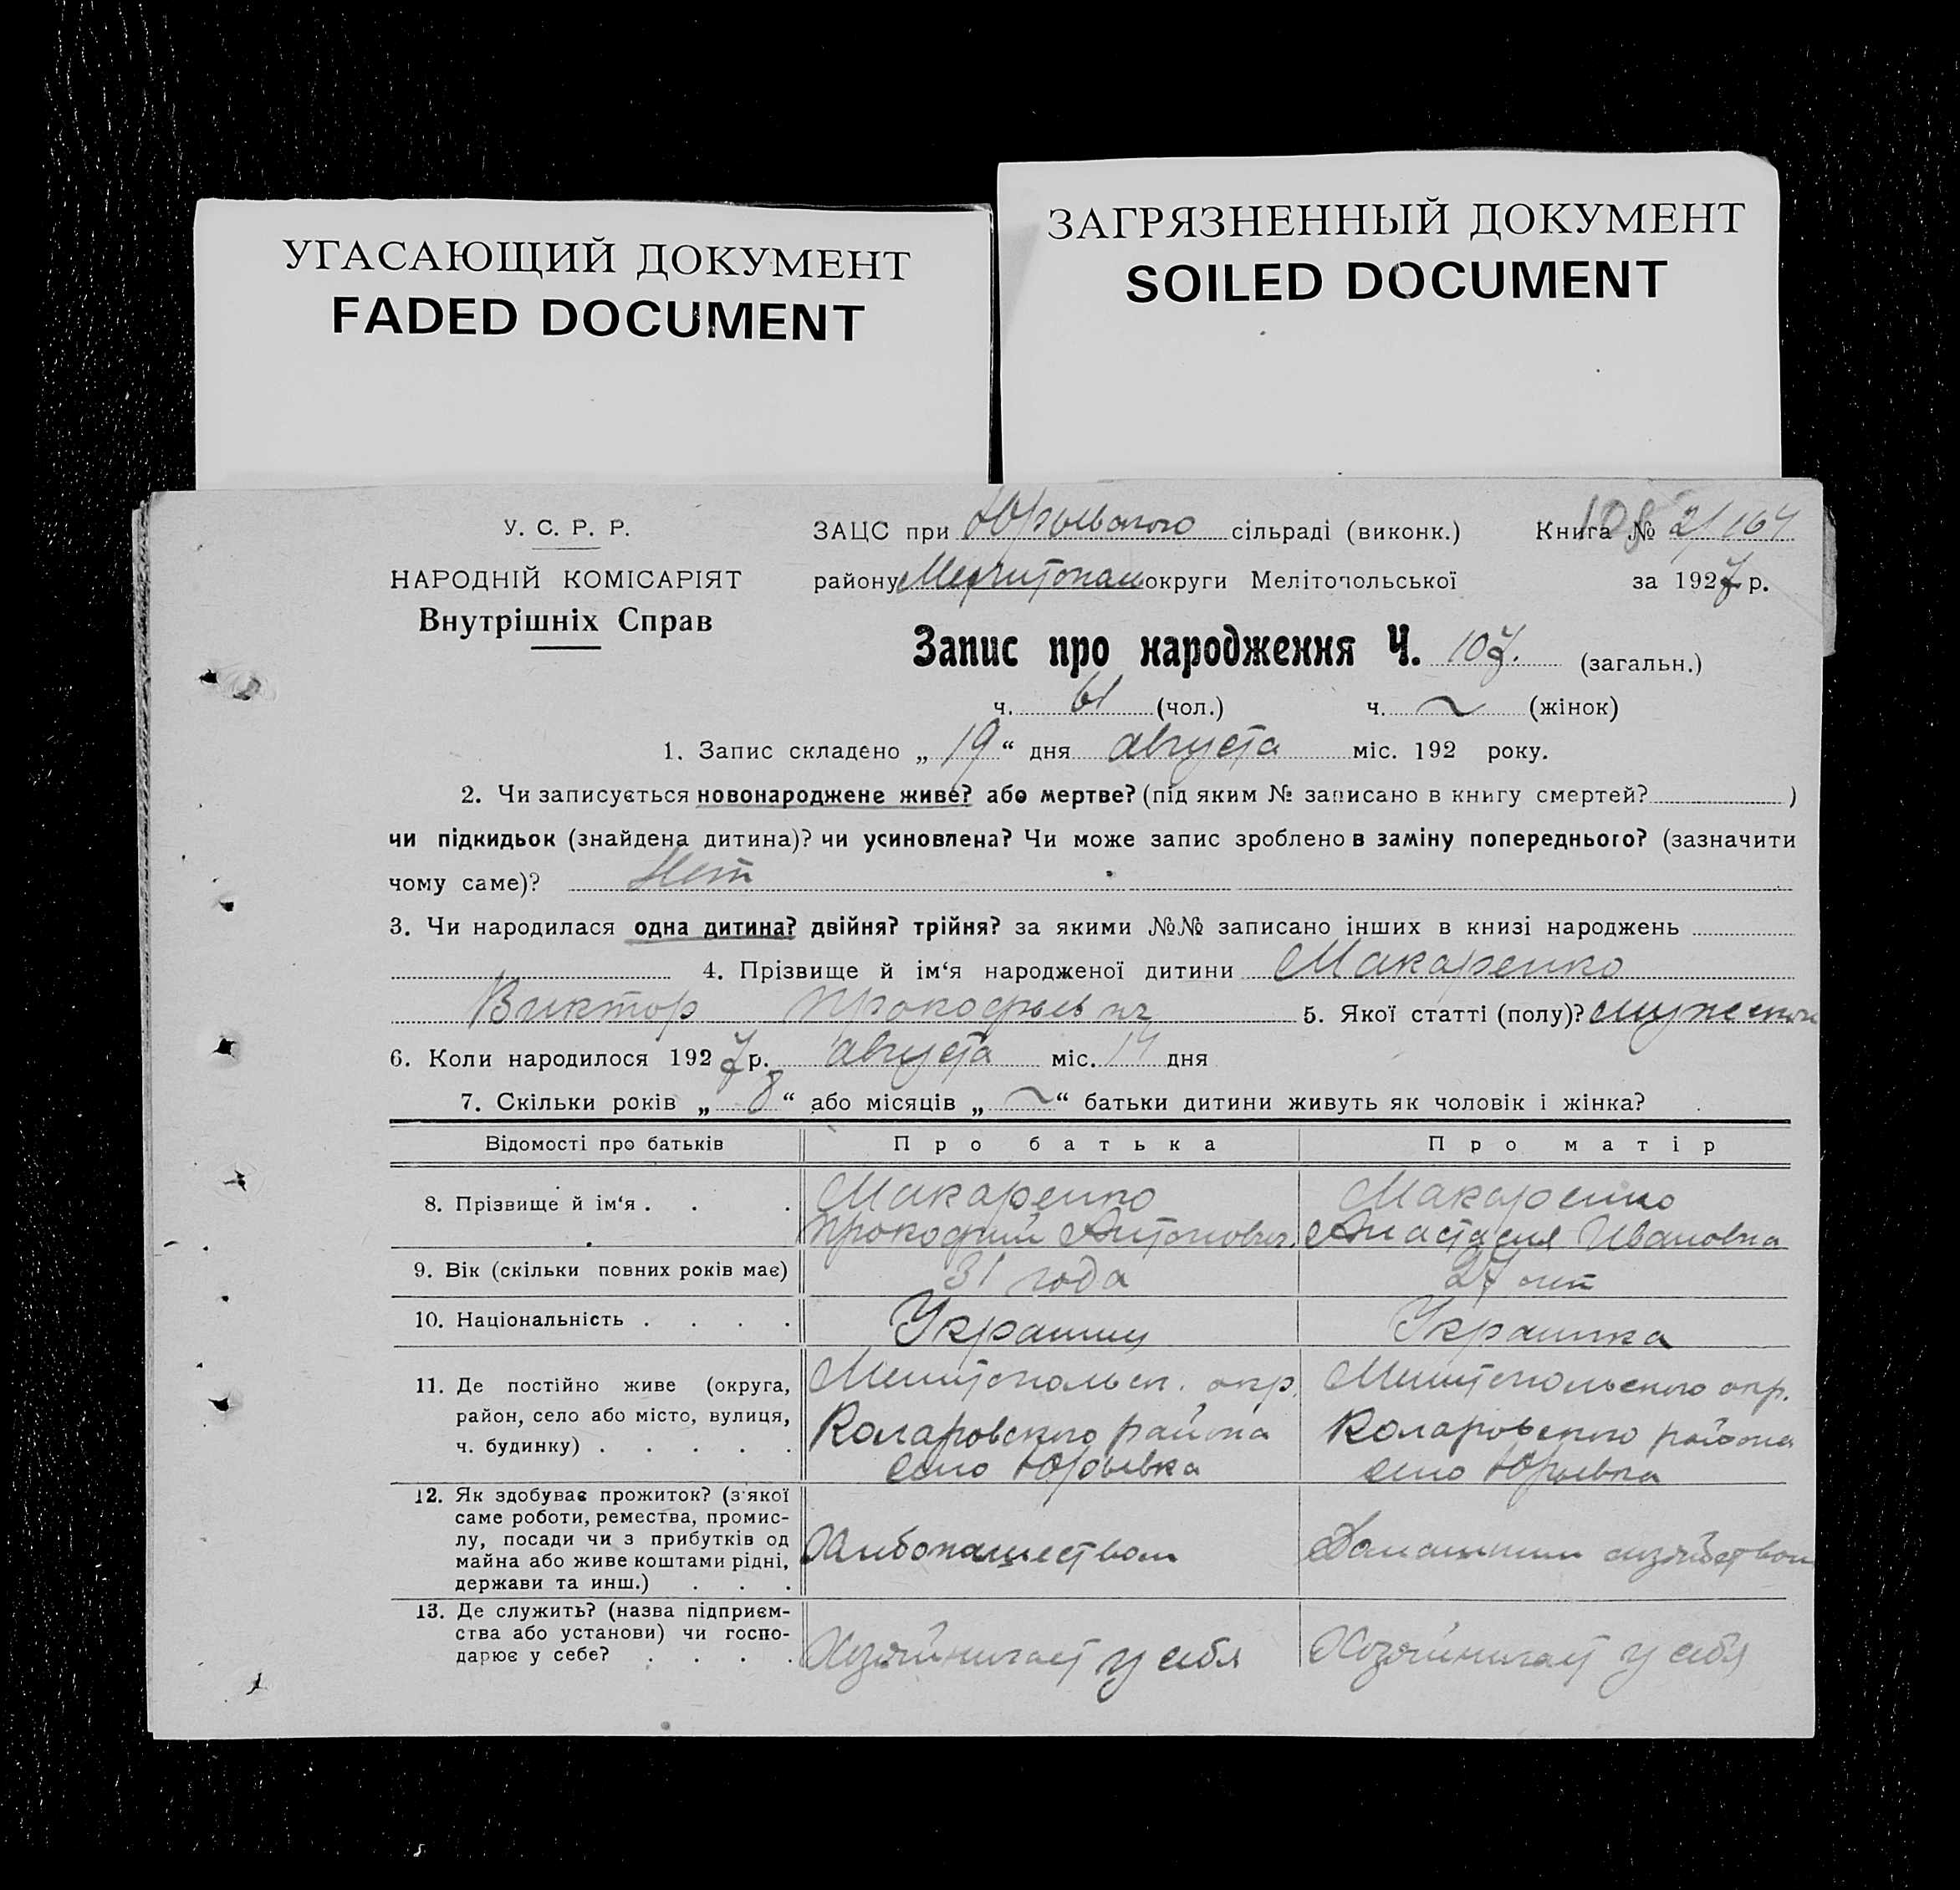 УГАСАЮЩИЙ ДОКУМЕНТ
FADED DOCUMENT
ЗАГРЯЗНЕННЫЙ ДОКУМЕНТ
SOILED DOCUMENT
У. С. Р. Р.
НАРОДНІЙ КОМІСАРІЯТ
Внутрішніх Справ
ЗАЦС при Юрьевского сільраді (виконк.) Книга № 2/164
108
району округи Мелітопольської за 1927 р.
Запис про народження Ч. 107. (загальн.)
ч. 61 (чол.) ч. ~ (жінок)
1. Запис складено „ 19 “ дня августа міс. 192 року.
2. Чи записується новонароджене живе? або мертве? (під яким № записано в книгу смертей? )
чи підкидьок (знайдена дитина)? чи усиновлена? Чи може запис зроблено в заміну попереднього? (зазначити
чому саме)? Нет
3. Чи народилася одна дитина? двійня? трійня? за якими №№ записано інших в книзі народжень
4. Прізвище й ім‘я народженої дитини Макаренко
Виктор Прокофьевич 5. Якої статті (полу)? мужеской
6. Коли народилося 1927 р. августа міс. 14 дня
7. Скільки років „ 8 “ або місяців „ ~ “ батьки дитини живуть як чоловік і жінка?
Відомості про батьків Про батька Про матір
8. Прізвище й ім‘я . . . Макаренко Макаренко
Прокофий Антонович. Анастасия Ивановна
9. Вік (скільки повних років має) 31 года 27 лет
10. Національність . . . . Украинец Украинка
11. Де постійно живе (округа, Мелитопольск. окр. Мелитопольского окр.
район, село або місто, вулиця, Коларовского района Коларовского района
ч. будинку) . . . . . село Юрьевка село Юрьевка
12. Як здобуває прожиток? (з якої
саме роботи, ремества, промис-
лу, посади чи з прибутків од Хлебопашеством Домашним хозяйством
майна або живе коштами рідні,
держави та инш.) . . .
13. Де служить? (назва підприєм-
ства або установи) чи госпо-
дарює у себе? . . . . Хозяйничает у себя Хозяйничает у себя